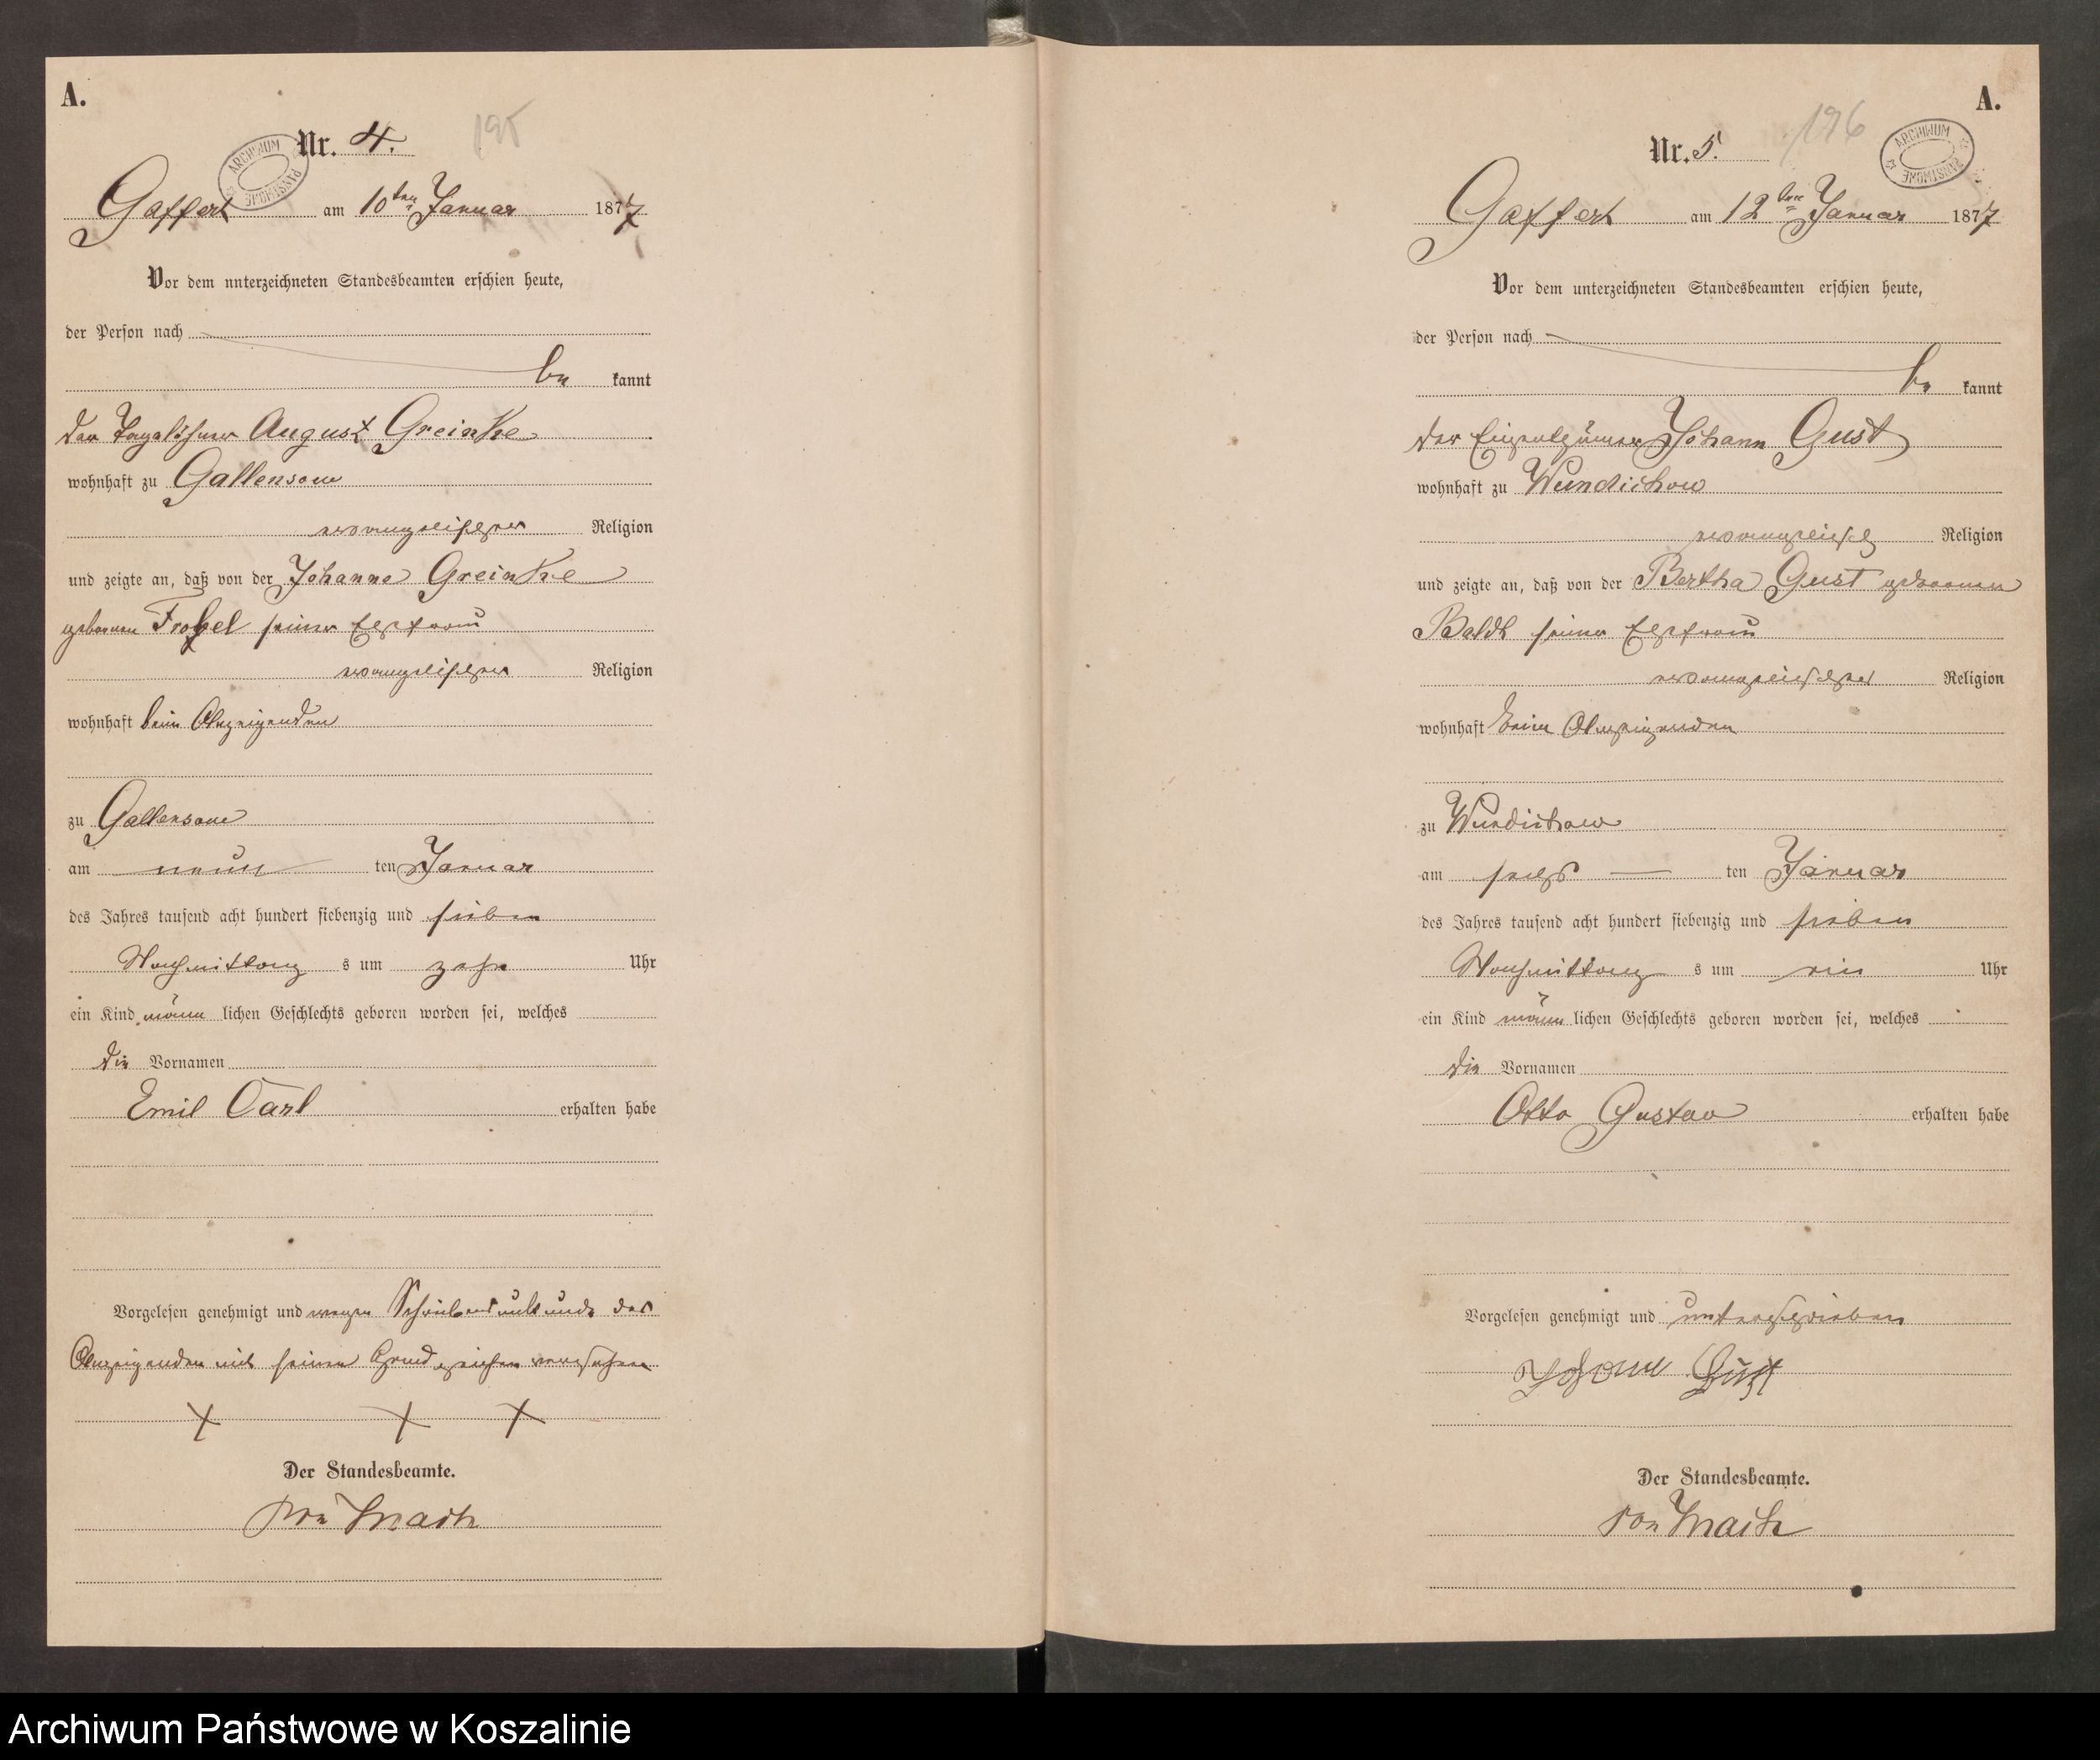 A.
Nr. 4.
195
ARCHIWUM PAŃSTWOWE
Gaffert am 10ten Januar 1877
Vor dem unterzeichneten Standesbeamten erschien heute,
der Person nach
be kannt
der Tagelöhner August Greinke
wohnhaft zu Gallensow
evangelischer Religion
und zeigte an, daß von der Johanne Greinke
geborenen seiner Ehefrau
evangelischer Religion
wohnhaft beim Anzeigenden
zu Gallensow
am neun ten Januar
des Jahres tausend acht hundert siebenzig und sieben
Nachmittag s um zehn Uhr
ein Kind männ lichen Geschlechts geboren worden sei, welches
die Vornamen
Emil Carl erhalten habe
Vorgelesen genehmigt und wegen Schreibensunkunde des
Anzeigenden mit seinem Handzeichen versehen
+ + +
Der Standesbeamte.
von Mach
A.
Nr. 5.
196
ARCHIWUM PAŃSTWOWE
Gaffert am 12ten Januar 1877
Vor dem unterzeichneten Standesbeamten erschien heute,
der Person nach
be kannt
der Eigenthümer Johann Gust
wohnhaft zu Wundichow
evangelisch Religion
und zeigte an, daß von der Bertha Gust geborenen
Baldt seiner Ehefrau
evangelischer Religion
wohnhaft beim Anzeigenden
zu Wundichow
am sechs ten Januar
des Jahres tausend acht hundert siebenzig und sieben
Nachmittag s um ein Uhr
ein Kind männ lichen Geschlechts geboren worden sei, welches
die Vornamen
Otto Gustav erhalten habe
Vorgelesen genehmigt und unterschrieben
Johann Gust
Der Standesbeamte.
von Mach
Archiwum Państwowe w Koszalinie